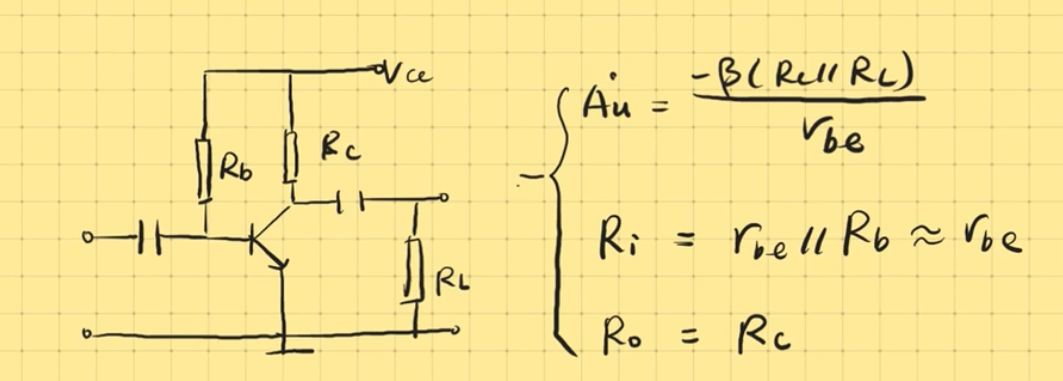 Vce
Rb
Rc
RL
Ȧu = -β(Rc // RL) / rbe
Ri = rbe // Rb ≈ rbe
Ro = Rc